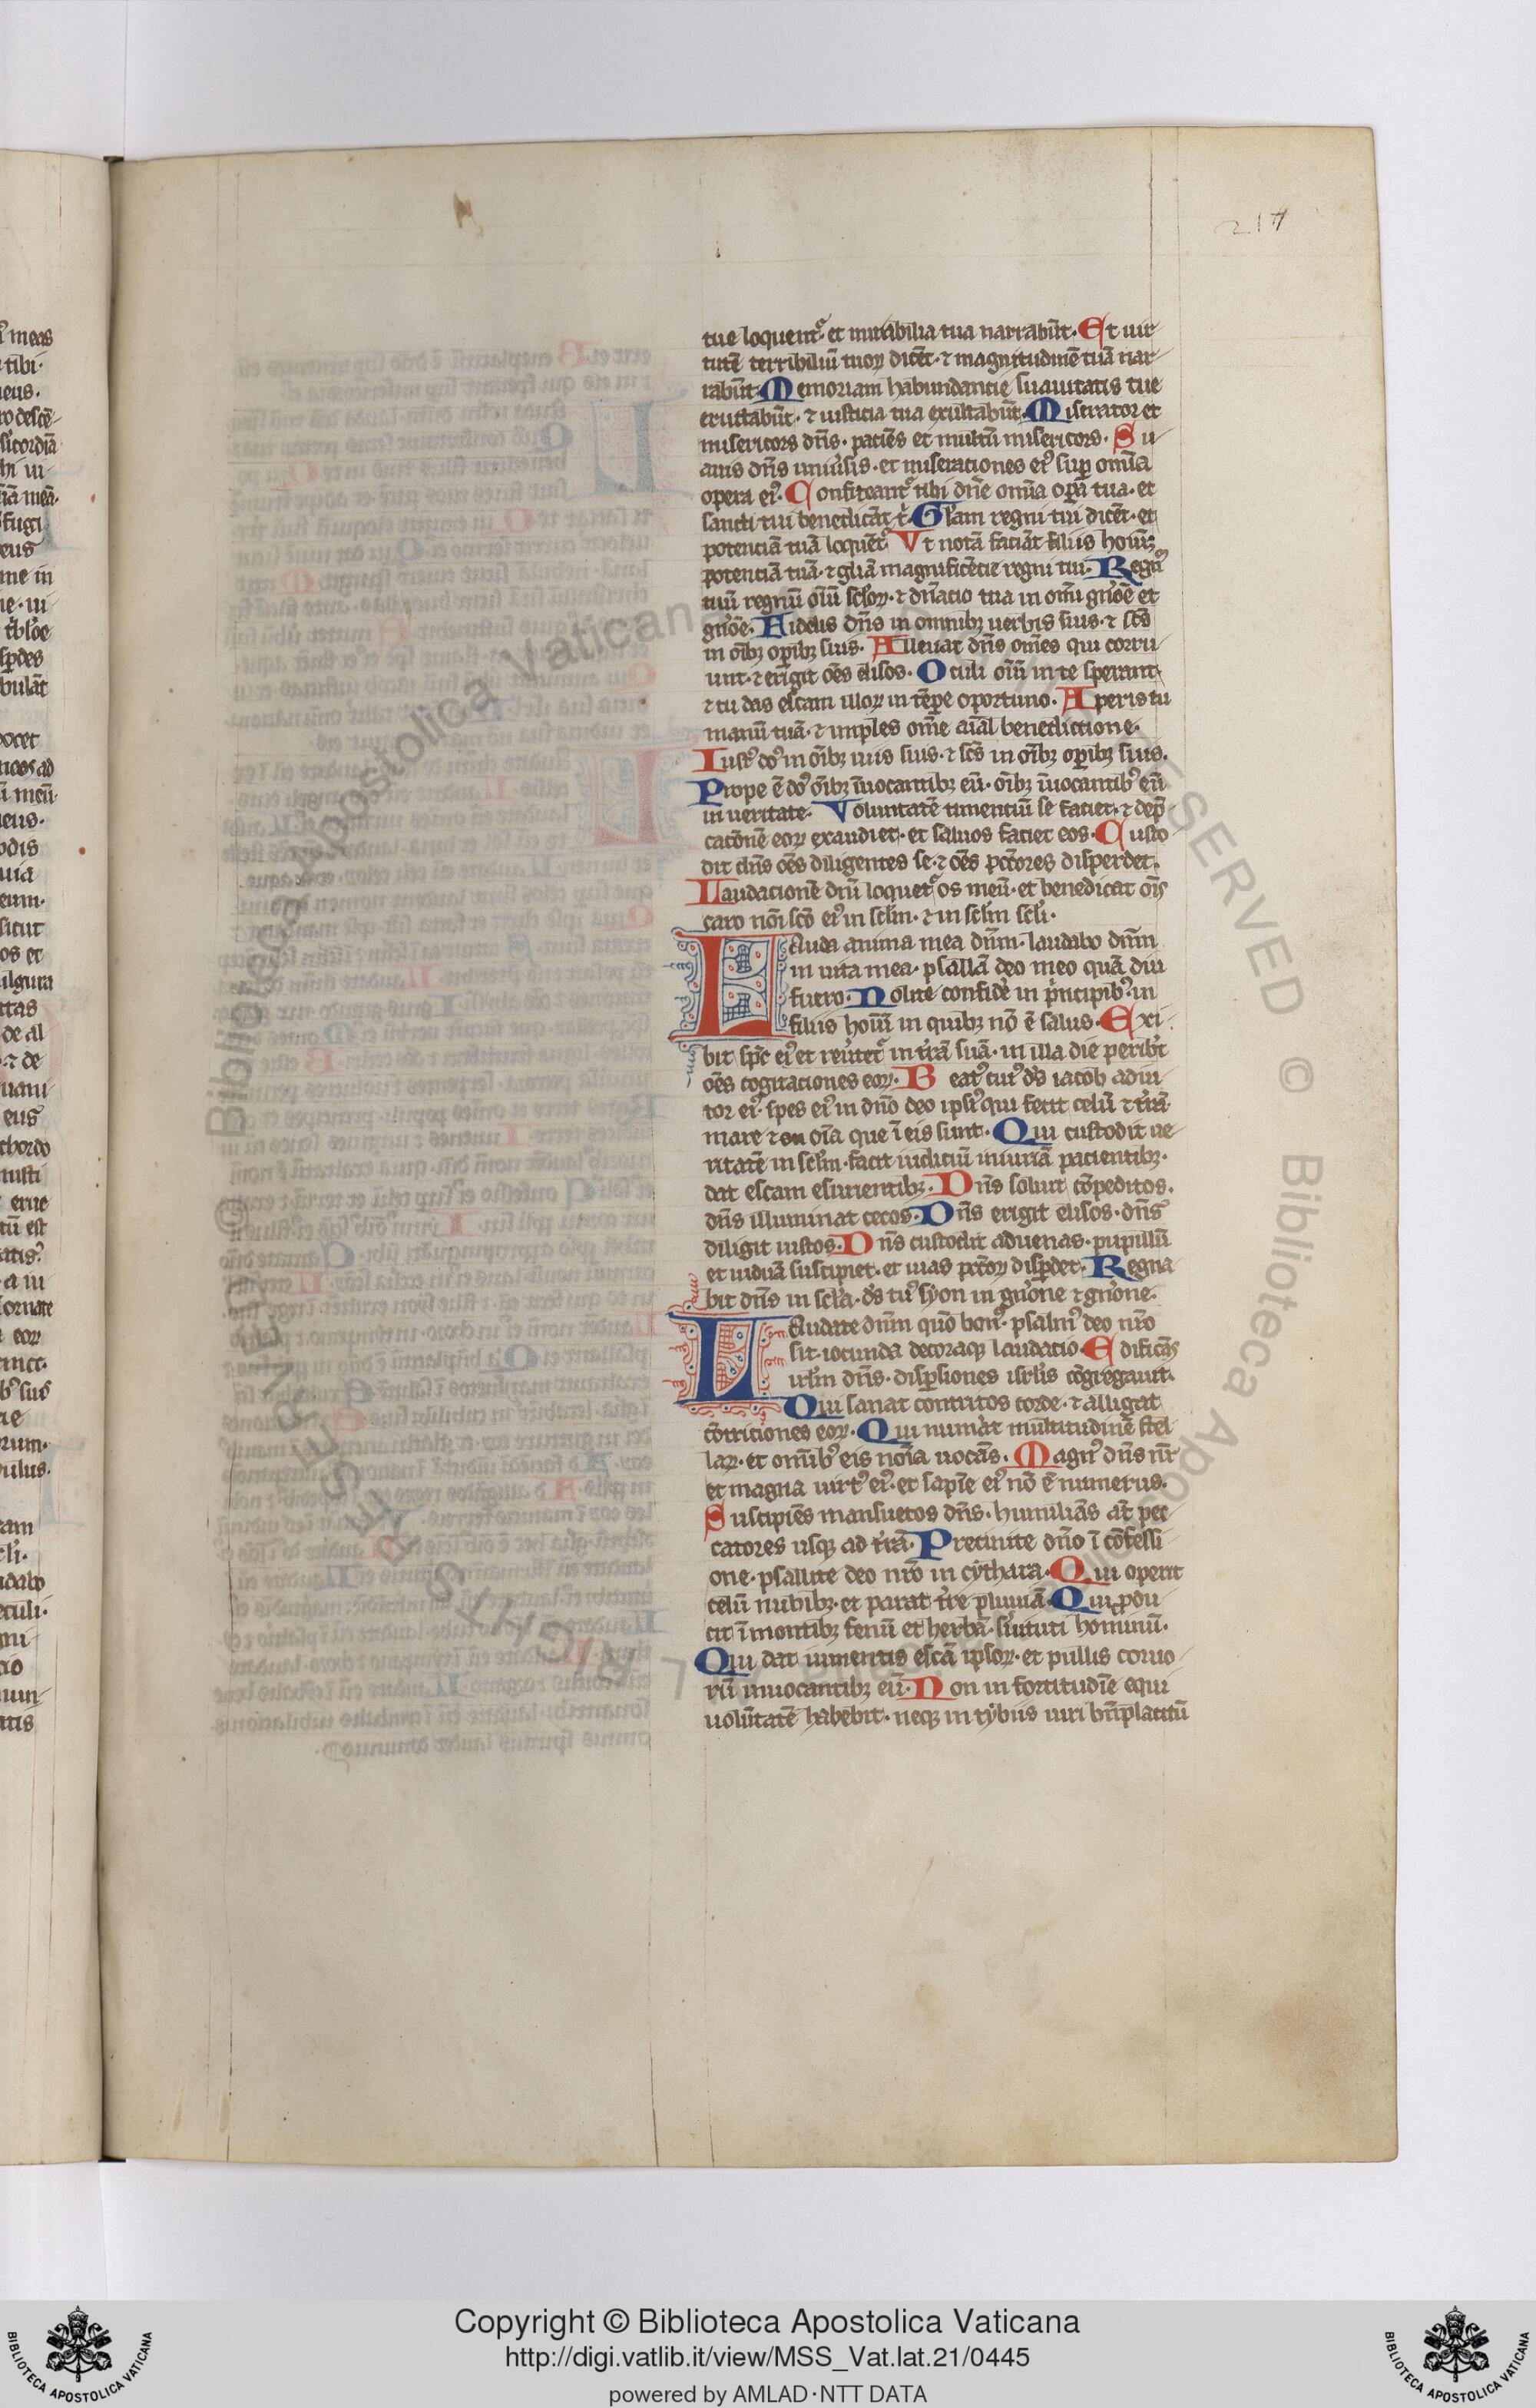 217
tue loquent᷒ et mirabilia tua narrabūt· Et uir
tutē terribiliū tuoꝝ dicēt· ⁊ magnitudinē tuā nar
rabūt· Memoriam habundancie suauitatis tue
eructabūt· ⁊ iusticia tua exultabūt· Miserator et
misericors dn̄s· paciēs et multū misericors· Su
auis dn̄s uniuersis· et miseraciones ei᷒ suꝑ om̄ia
opera ei᷒· Confiteant᷒ tibi dn̄e om̄ia oꝑa tua· et
sancti tui benedicāt t· Gl̄am regni tui dicēt· et
potenciā tuā loquēt᷒ Vt notā faciāt filiis houīꝫ
potenciā tuā· ⁊ gl̄iā magnificēcie regni tui· Regn᷒
tuū regnū oīū sc̄loꝝ· ⁊ dn̄acio tua in om̄i gn̄oē et
gn̄oē· Fidelis dn̄s in omnibꝫ uerbis suis· ⁊ sc̄s
in oībꝫ oꝑibꝫ suis· Alleuat dn̄s om̄es qui corru
unt· ⁊ erigit oēs elisos· Oculi oīū in te sperant·
⁊ tu das escam illoꝝ in tēpe oportuno· Aperis tu
manū tuā· ⁊ imples om̄e aīal benedictione·
Iust᷒ do᷒ in oībꝫ uiis suis· ⁊ sc̄s in oībꝫ oꝑibꝫ suis·
Prope ē do᷒ oībꝫ īuocantibꝫ eū· oībꝫ īuocantib᷒ eū
in ueritate· Voluntatē timentiū se faciet· ⁊ dep̄
catōnē eoꝝ exaudiet· et saluos faciet eos· Custo
dit dn̄s oēs diligentes se· ⁊ oēs pctōres disperdet·
Laudacionē dn̄i loquet᷒ os meū· et benedicat oīs
caro nōi scō ei᷒ in sc̄lm· ⁊ in sc̄lm sc̄li·
Lauda anima mea dn̄m· laudabo dn̄m
in uita mea· psallā deo meo quā diu
fuero· Nolite confide in p̄ncipib᷒· in
filiis hoīū in quibꝫ nō ē salus· Exi
bit sp̄c ei᷒ et reu̓tet᷒ in t̓rā suā· in illa die peribt̓
oēs cogitaciones eoꝝ· Beat᷒ cui᷒ d̓s iacob adiu
tor ei᷒· spes ei᷒ in dn̄o deo ipsi᷒ qui fecit celū ⁊ t̓rā·
mare ⁊ oīa que ī eis sunt· Qui custodit ue
ritatē in sc̄lm· facit iudiciū iniuriā pacientibꝫ·
dat escam esurientibꝫ· Dn̄s soluit cōpeditos·
dn̄s illuminat cecos· Dn̄s erigit elisos· dn̄s
diligit iustos· Dn̄s custodit aduenas· pupillū
et uiduā suscipiet· et uias pctōꝝ disꝑdet· Regna
bit dn̄s in sc̄la· d̓s tu᷒ syon in gn̓one ⁊ gn̓one·
Laudate dn̄m qūo bon᷒· psalm᷒ deo nr̄o
sit· iocunda decoraqꝫ laudatio· Edificās
irl̄m dn̄s· disꝑsiones isrl̄is cōgregauit·
Qui sanat contritos corde· ⁊ alligat
cōtriciones eoꝝ· Qui num̓at multitudinē stel
laꝝ· et omīb᷒ eis noīa uocās· Magn᷒ dn̄s nr̄
et magna uirt᷒ ei᷒· et sapīe ei᷒ nō ē numerus·
Suscipiēs mansuetos dn̄s· humiliās at̄ pec
catores usqꝫ ad t̓rā· Precinite dn̄o ī cōfessi
one· psallite deo nr̄o in cythara· Qui operit
celū nubibꝫ· et parat t̓re pluuiā· Qui ꝓdu
cit ī montibꝫ fenū et herbā· s̓uituti hominū·
Qui dat iumentis escā ipsoꝝ· et pullis coruo
rū inuocantibꝫ eū· Non in fortitudīe equi
uolūtatē habebit· neqꝫ in tybiis uiri bn̄placitū
Copyright © Biblioteca Apostolica Vaticana
http://digi.vatlib.it/view/MSS_Vat.lat.21/0445
powered by AMLAD·NTT DATA